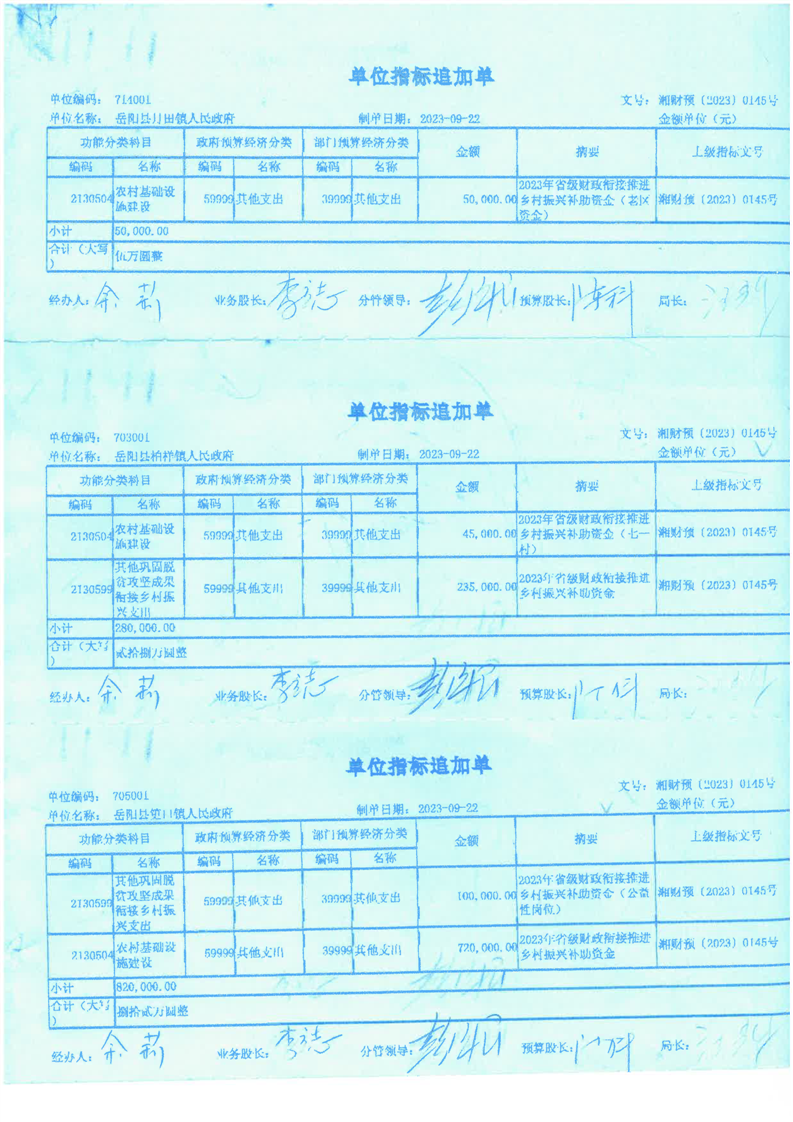 单位指标追加单
单位编码： 714001 文号： 湘财预〔2023〕0145号
单位名称： 岳阳县月田镇人民政府 制单日期： 2023-09-22 金额单位（元）
功能分类科目 政府预算经济分类 部门预算经济分类 金额 摘要 上级指标文号
编码 名称 编码 名称 编码 名称
2130504 农村基础设施建设 59999 其他支出 39999 其他支出 50,000.00 2023年省级财政衔接推进乡村振兴补助资金（老区资金） 湘财预〔2023〕0145号
小计 50,000.00
合计（大写） 伍万圆整
经办人： 余莉 业务股长： 李志 分管领导： 预算股长： 陈科 局长：
单位指标追加单
单位编码： 703001 文号： 湘财预〔2023〕0145号
单位名称： 岳阳县柏祥镇人民政府 制单日期： 2023-09-22 金额单位（元）
功能分类科目 政府预算经济分类 部门预算经济分类 金额 摘要 上级指标文号
编码 名称 编码 名称 编码 名称
2130504 农村基础设施建设 59999 其他支出 39999 其他支出 45,000.00 2023年省级财政衔接推进乡村振兴补助资金（七一村） 湘财预〔2023〕0145号
2130599 其他巩固脱贫攻坚成果衔接乡村振兴支出 59999 其他支出 39999 其他支出 235,000.00 2023年省级财政衔接推进乡村振兴补助资金 湘财预〔2023〕0145号
小计 280,000.00
合计（大写） 贰拾捌万圆整
经办人： 余莉 业务股长： 李志 分管领导： 预算股长： 局长：
单位指标追加单
单位编码： 705001 文号： 湘财预〔2023〕0145号
单位名称： 岳阳县筻口镇人民政府 制单日期： 2023-09-22 金额单位（元）
功能分类科目 政府预算经济分类 部门预算经济分类 金额 摘要 上级指标文号
编码 名称 编码 名称 编码 名称
2130599 其他巩固脱贫攻坚成果衔接乡村振兴支出 59999 其他支出 39999 其他支出 100,000.00 2023年省级财政衔接推进乡村振兴补助资金（公益性岗位） 湘财预〔2023〕0145号
2130504 农村基础设施建设 59999 其他支出 39999 其他支出 720,000.00 2023年省级财政衔接推进乡村振兴补助资金 湘财预〔2023〕0145号
小计 820,000.00
合计（大写） 捌拾贰万圆整
经办人： 余莉 业务股长： 李志 分管领导： 预算股长： 局长：